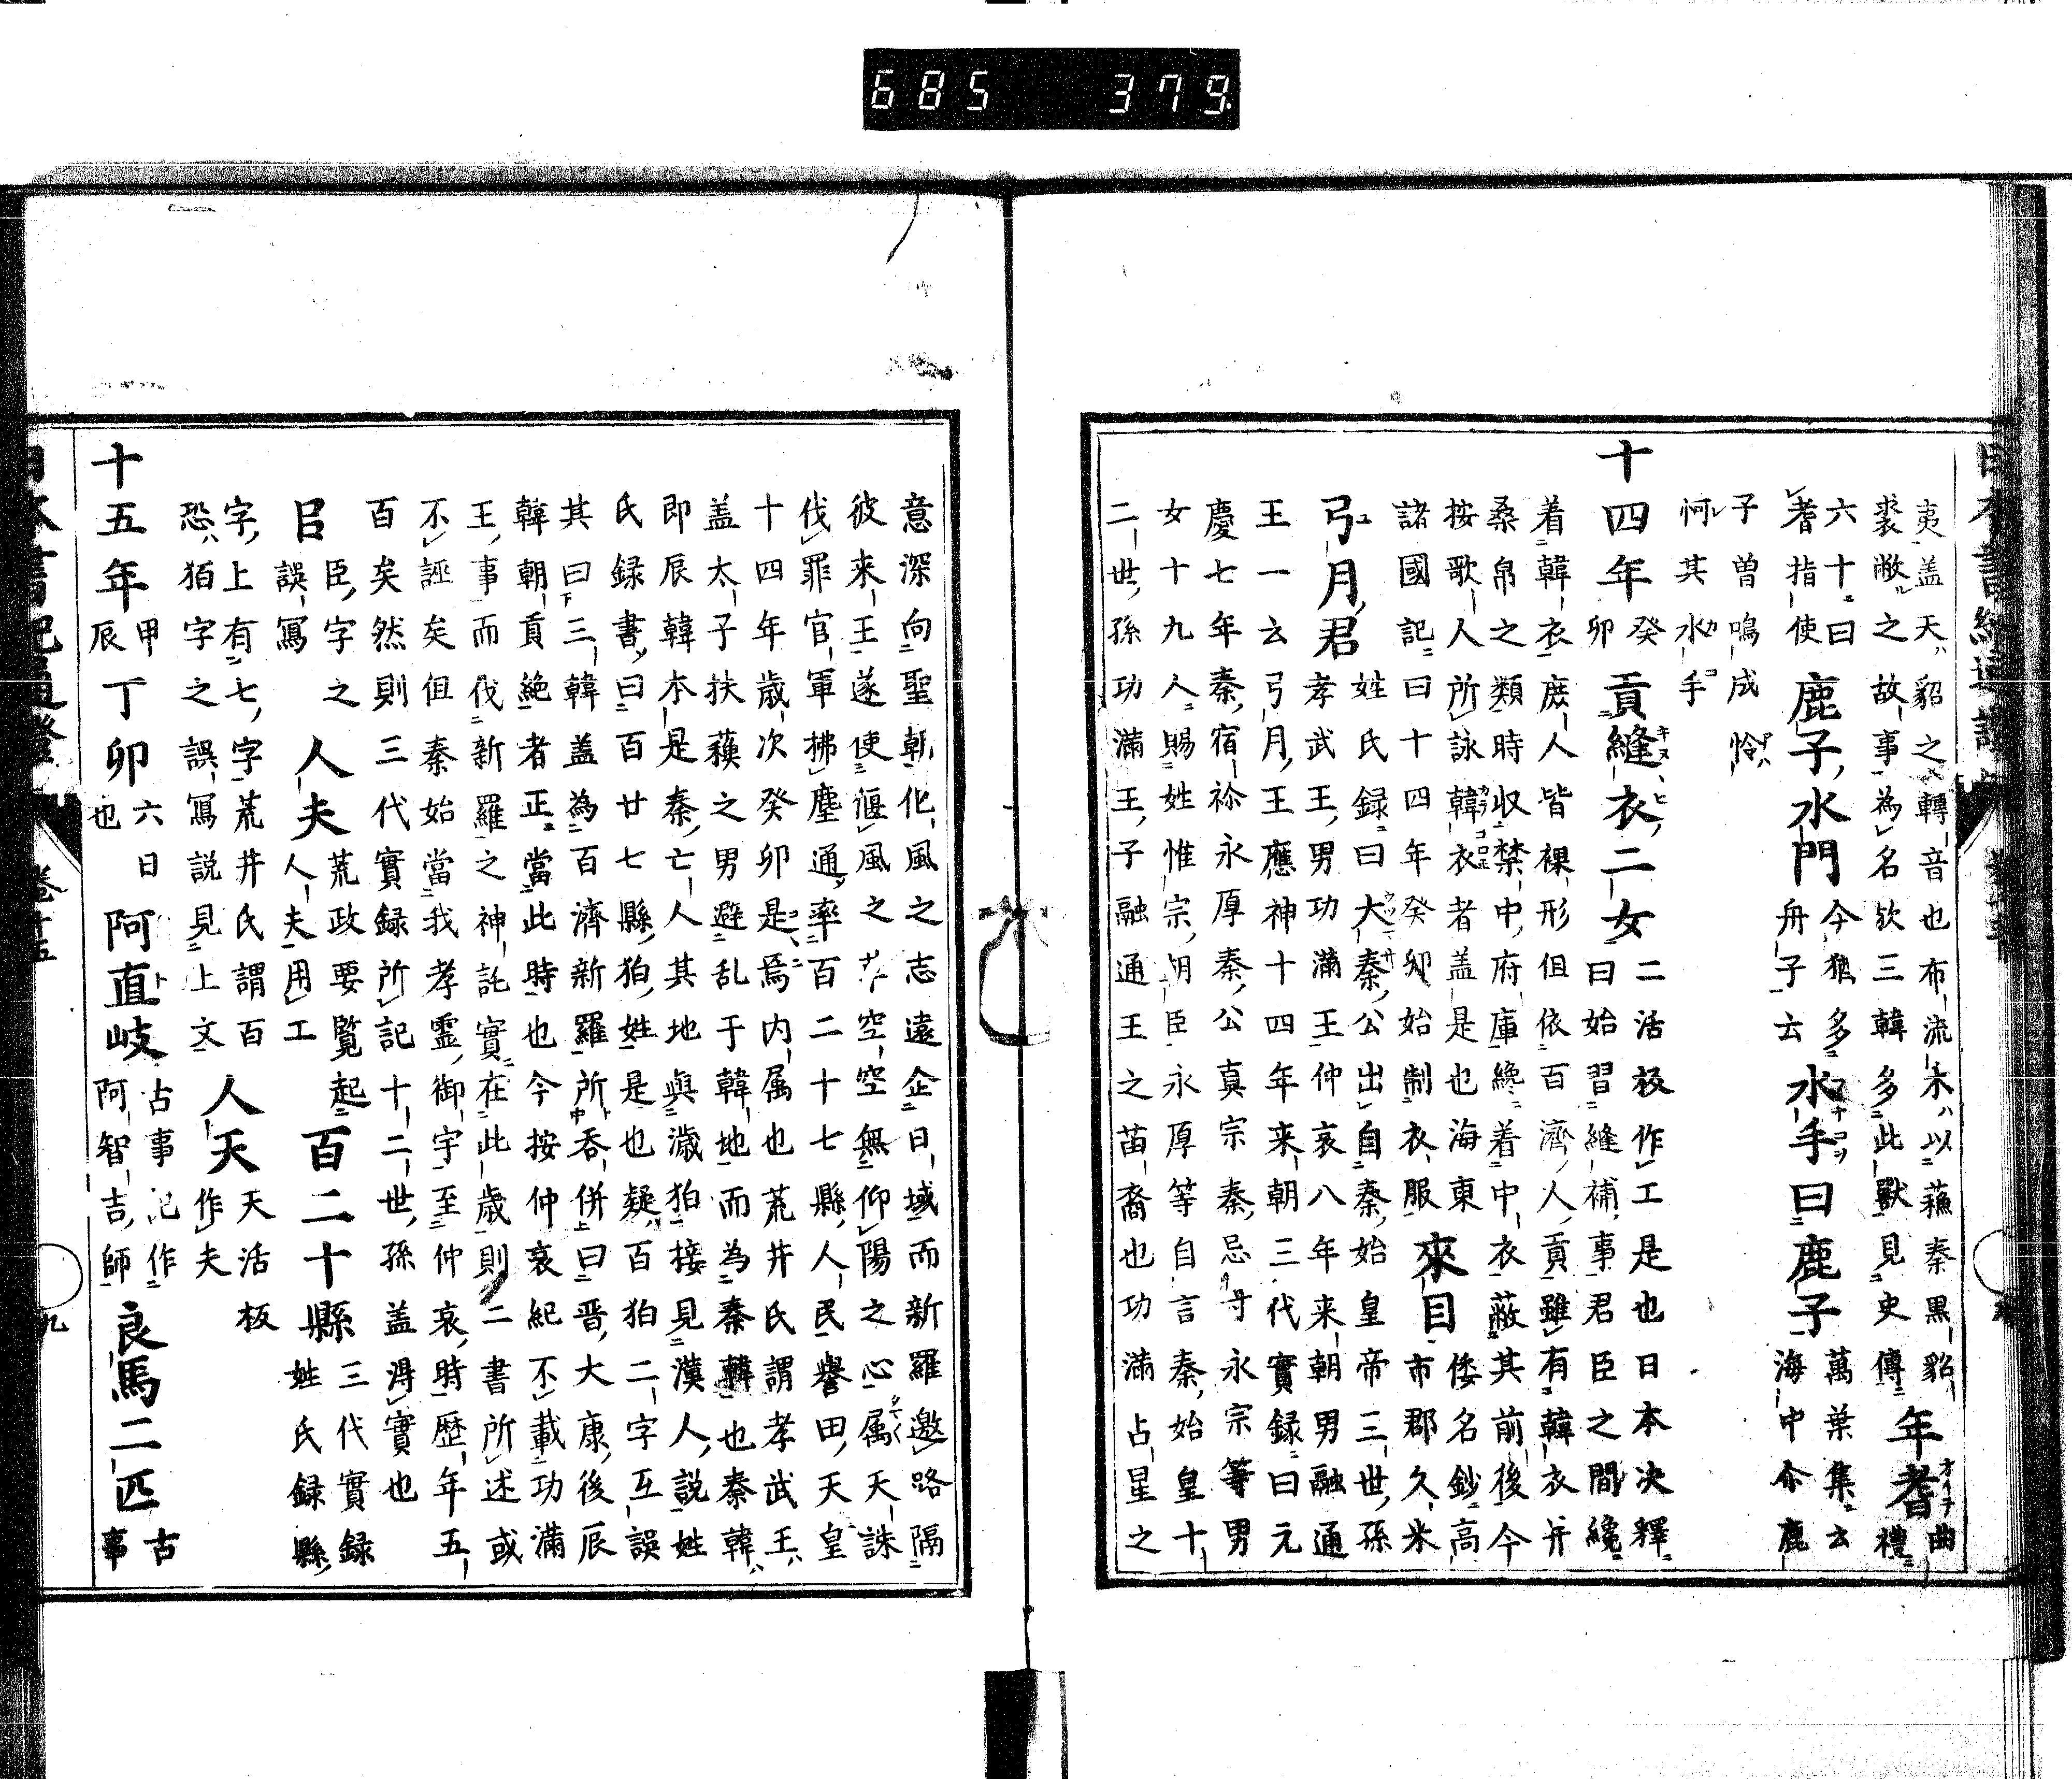 685 379
夷盖天ハ貂之轉音也布流末ハ以蘓秦黒貂
裘敝之故事為名欤三韓多此獸見史傳
年耆オイテ
曲禮
六十曰
耆指使
鹿子水門
今猶多
舟子云
水手曰鹿子
萬葉集云
海中介鹿
子曽鳴成怜
呵其水手
十四年
癸
卯
貢縫衣二女
二活板作工是也日本決釋
曰始習縫補事君臣之間纔
着韓衣庶人皆裸形但依百濟人貢雖有韓衣并
桑帛之類時収禁中府庫纔着中衣蔽其前後今
按歌人所詠韓衣者盖是也海東
諸國記曰十四年癸卯始制衣服
來目
倭名鈔高
市郡久米
弓月君
姓氏録曰大秦公出自秦始皇帝三世孫
孝武王男功満王仲哀八年来朝男融通
王一云弓月王應神十四年来朝三代實録曰元
慶七年秦宿祢永厚秦公真宗秦忌寸永宗等男
女十九人賜姓惟宗朝臣永厚等自言秦始皇十
二世孫功滿王子融通王之苗裔也功滿占星之
意深向聖朝化風之志遠企日域而新羅邀路隔
彼来王遂使偃風之空空無仰陽之心属天誅
伐罪官軍拂塵通率百二十七縣人民譽田天皇
十四年歳次癸卯是焉内属也荒井氏謂孝武王ハ
盖太子扶蘓之男避乱于韓地而為秦韓也秦韓ハ
即辰韓本是秦亡人其地與濊狛接見漢人説姓
氏録書曰百廿七縣狛姓是也疑百狛二字互誤
其曰三韓盖為百濟新羅所吞併曰晋大康後辰
韓朝貢絶者正當此時也今按仲哀紀不載功滿
王事而伐新羅之神託實在此歳則二書所述或
不誣矣但秦始當我孝霊御宇至仲哀時歴年五
百矣然則三代實録所記十二世孫盖淂實也
㠯
臣字之
誤寫
人夫
荒政要覧起
人夫用工
百二十縣
三代實録
姓氏録縣
字上有七字荒井氏謂百
恐ハ狛字之誤寫説見上文
人夭
夭活板
作夫
十五年
甲
辰
丁卯
六日
也
阿直岐
古事記作
阿智吉師
良馬二匹
古
事
卷十五
九